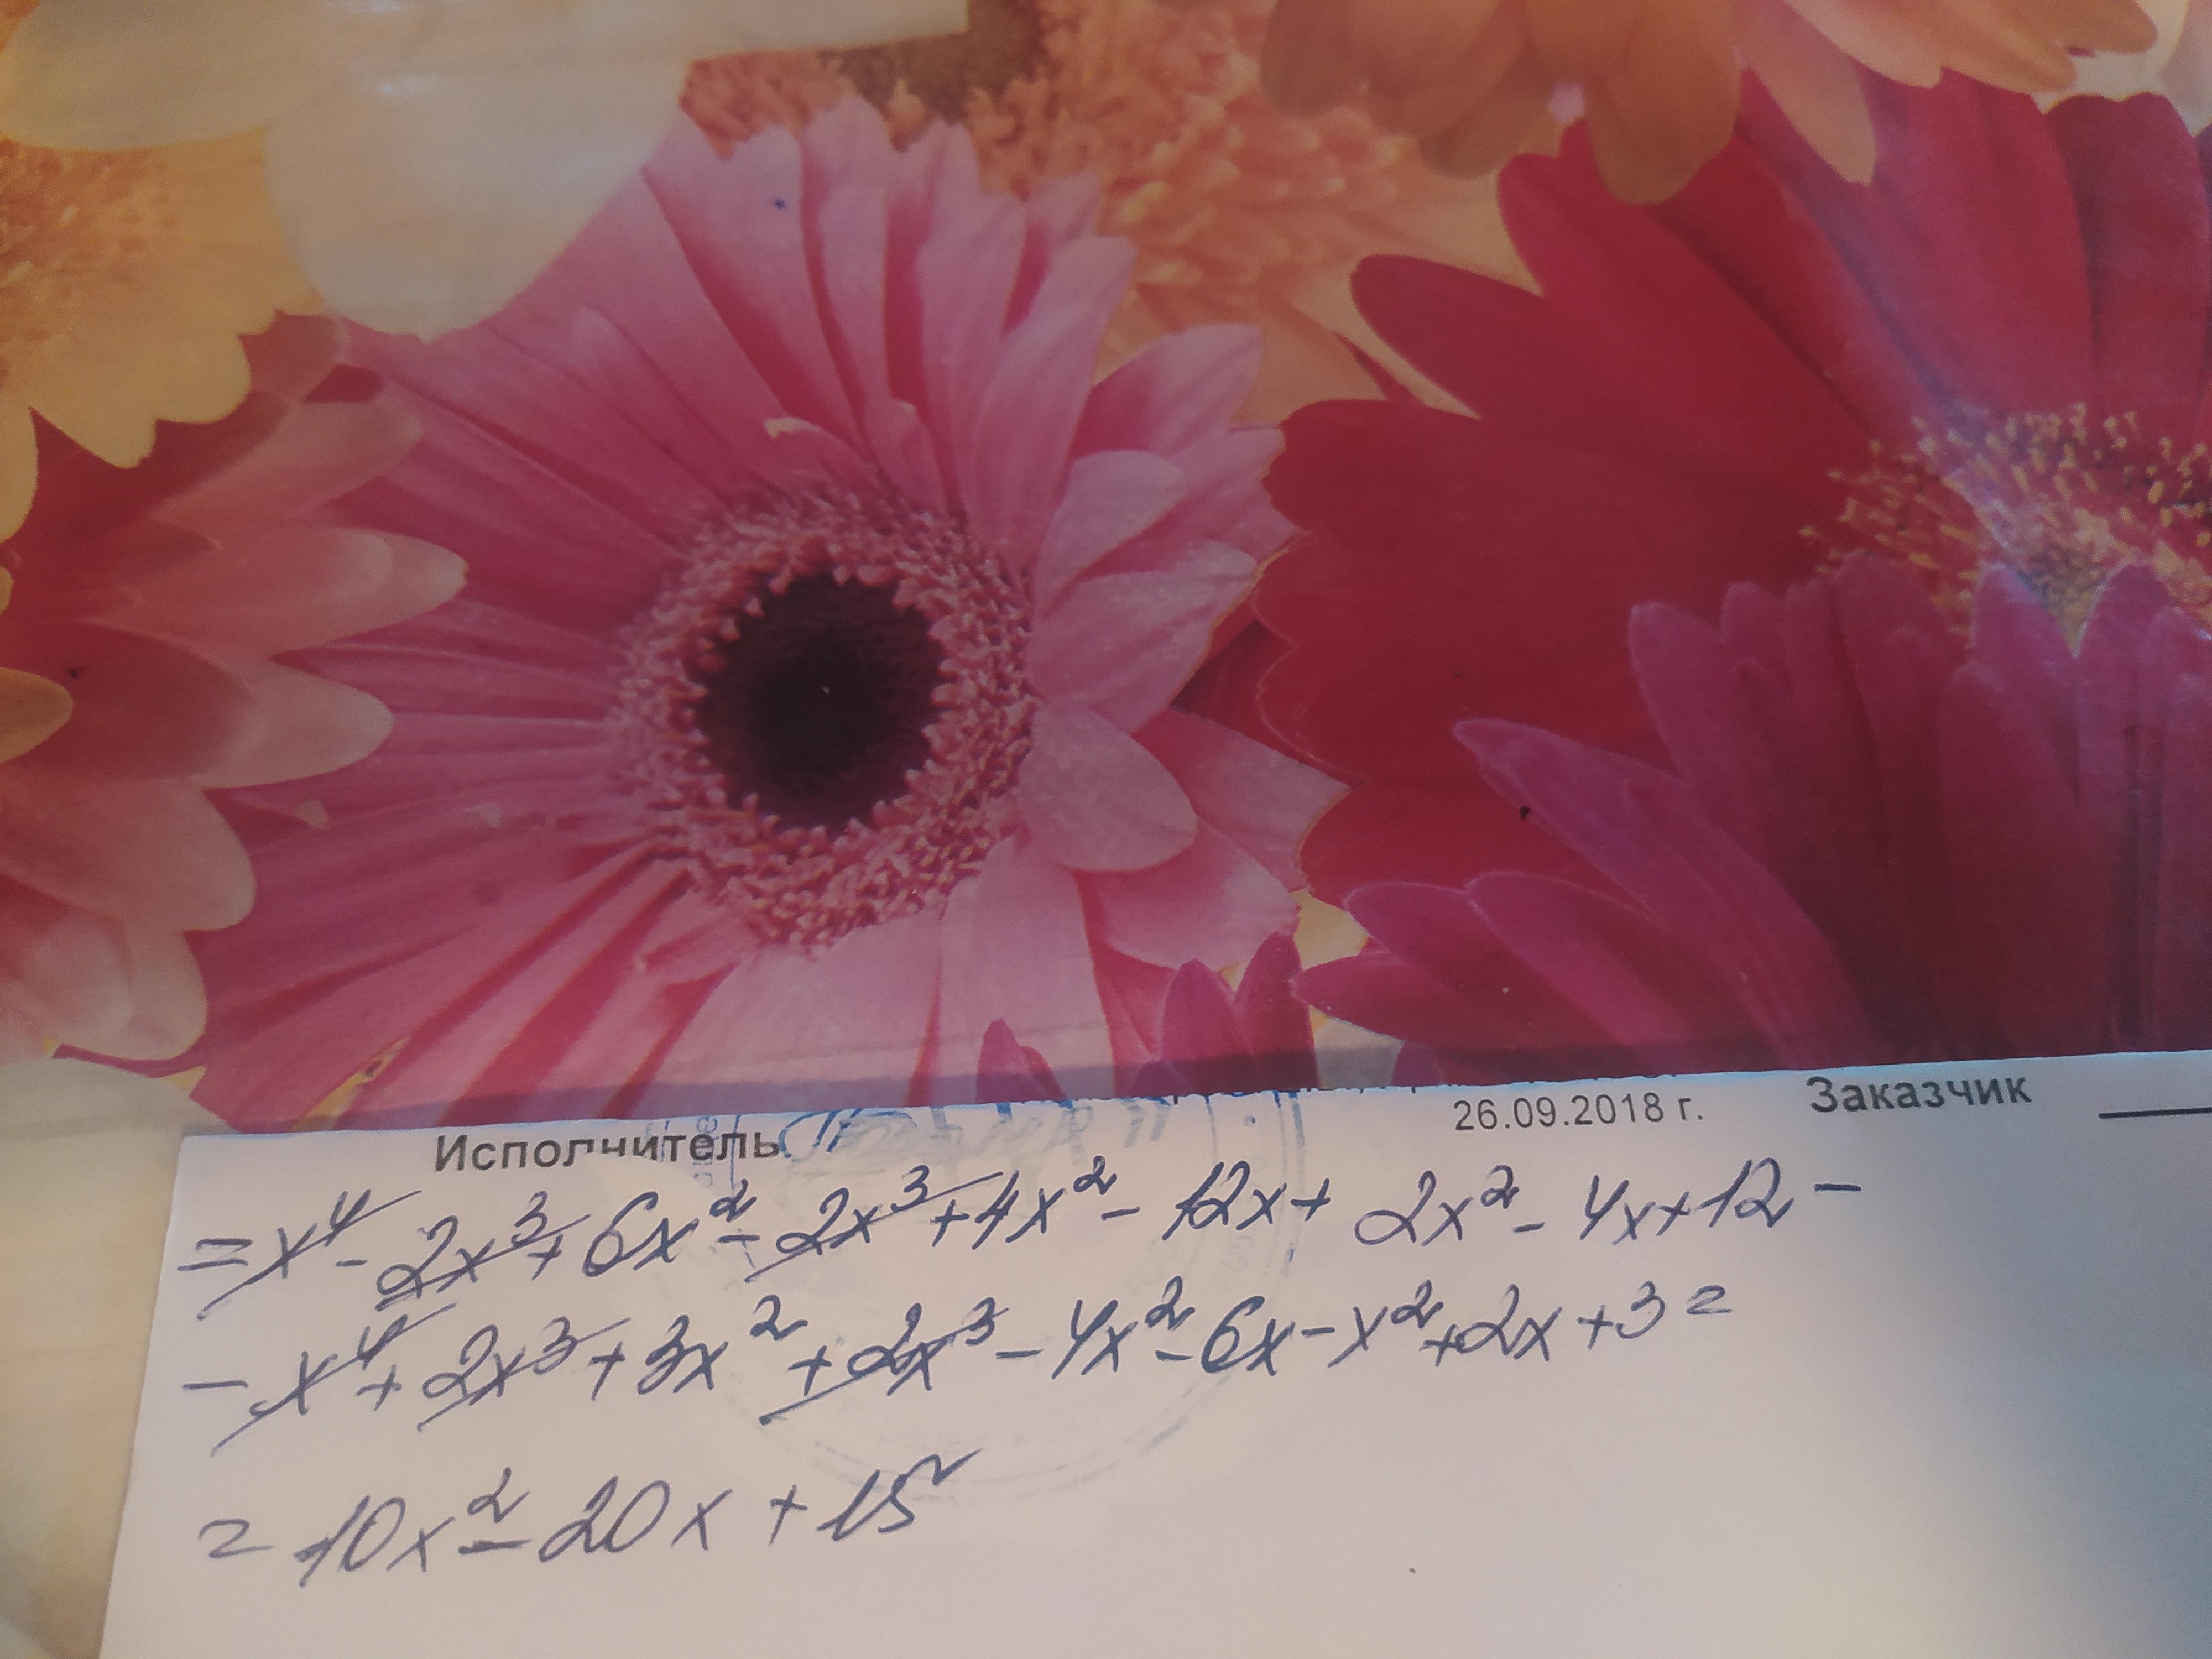 26.09.2018 г. Заказчик
Исполнитель
= x⁴ - 2x³ + 6x² - 2x³ + 4x² - 12x + 2x² - 4x + 12 -
- x⁴ + 2x³ + 3x² + 2x³ - 4x² - 6x - x² + 2x + 3 =
= 10x² - 20x + 15